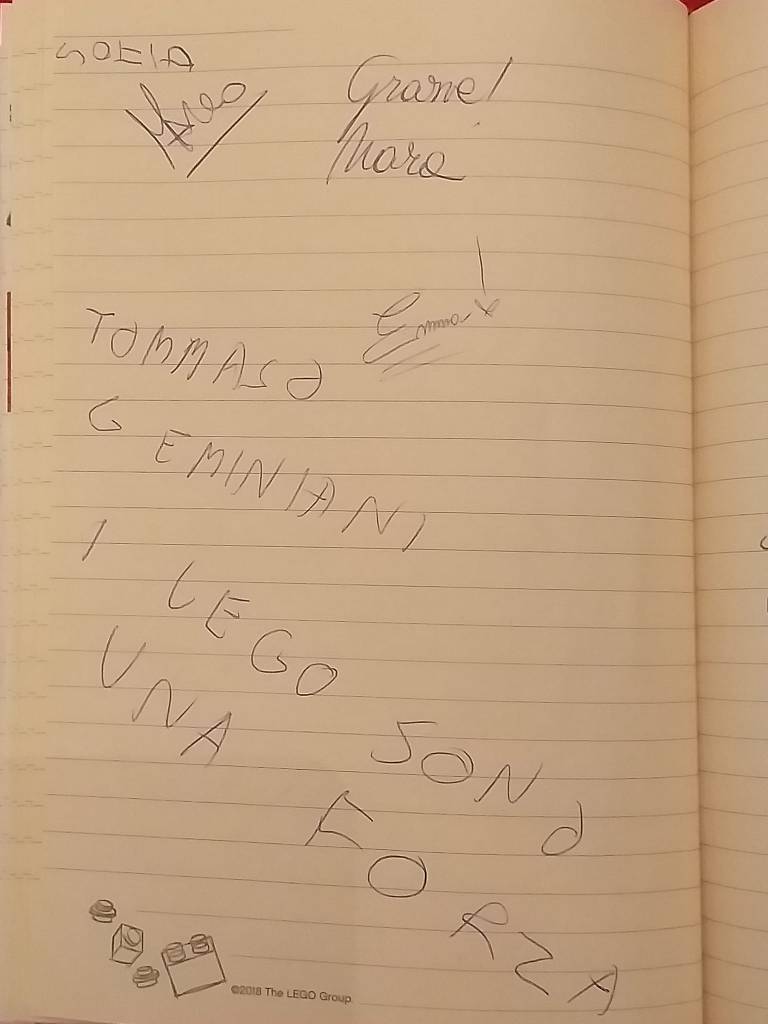 SOFIA
Grane!
Mara
Emma
TOMMASO
GEMINIANI
I LEGO SONO
UNA FORZA
©2018 The LEGO Group.